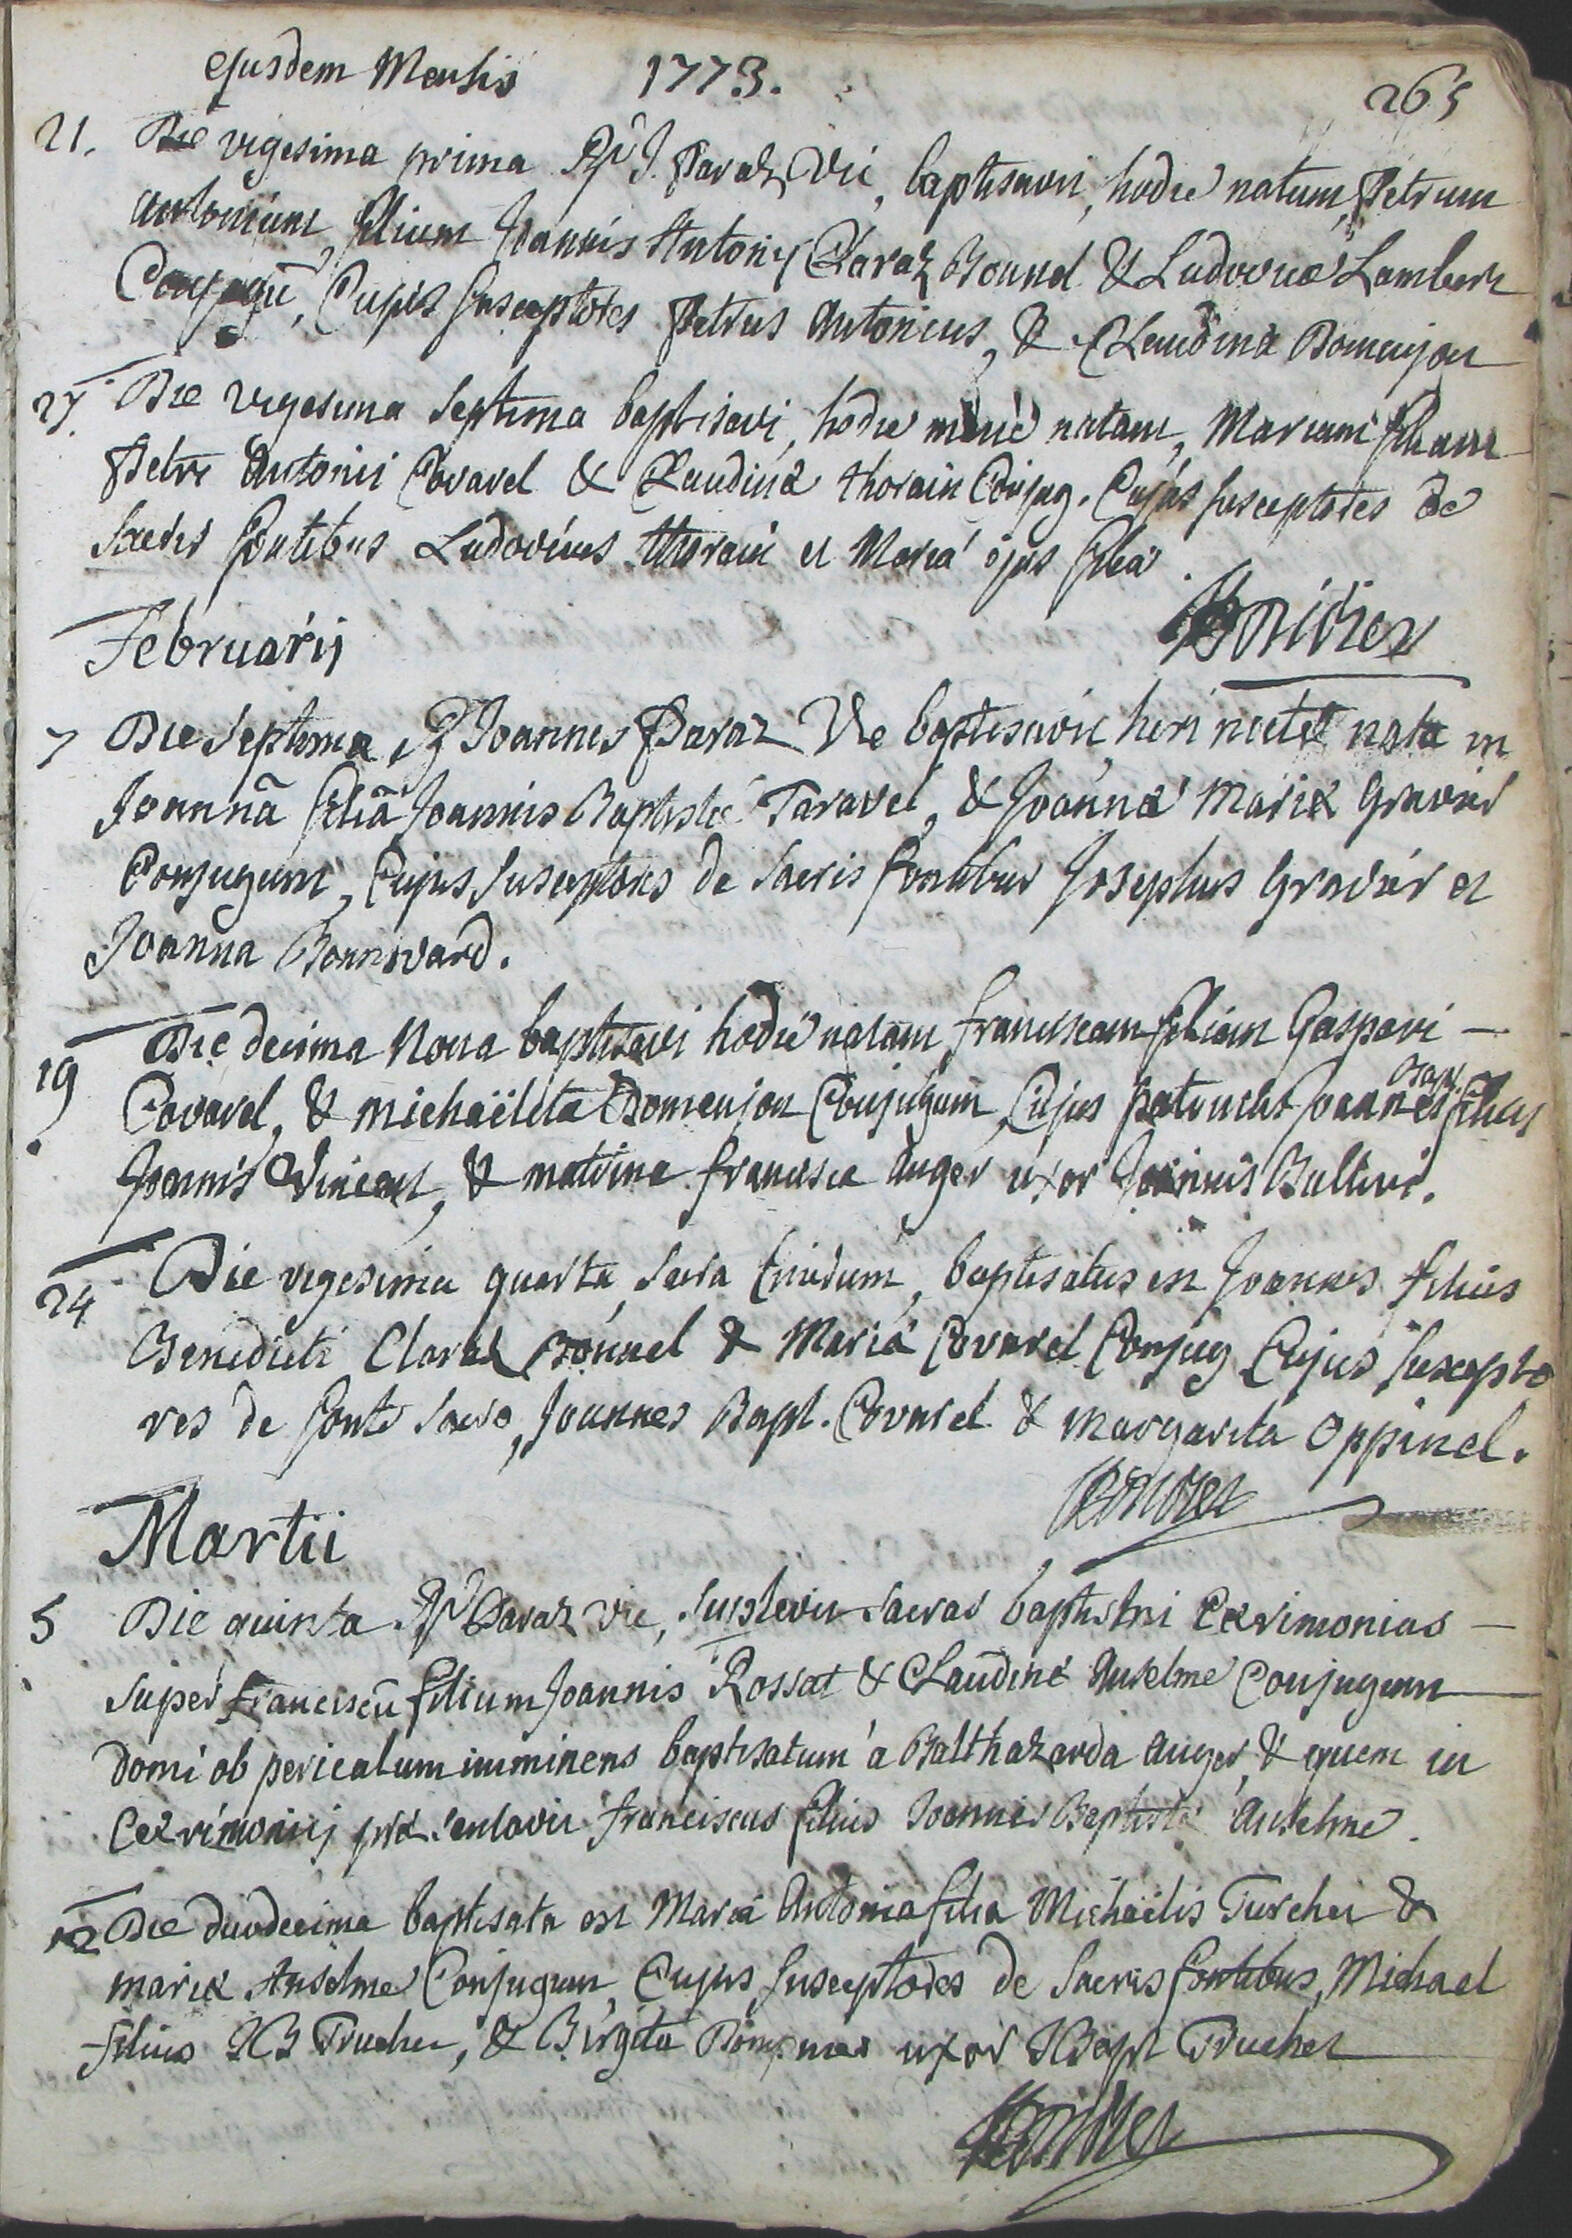 ejusdem Mensis 1773. 265
21. Die vigesima prima Rd J. Paraz Vic, baptisavit, hodie natum, Petrum
Antonium, filium Joannis Antonij Claraz Bonnel & Ludovicæ Lambert
Conjugũ, Cujus susceptores Petrus Antonius, & Claudina Domenjon
27 Die vigesima septima baptisavi, hodie mane natam, Mariam filiam
Petri Antonii Covarel & Claudinæ thorain Conjug. Cujus susceptores de
sacris fontibus Ludovicus thorain et Maria ejus filia
Februarij
7 Die septima, Rd Joannes Paraz Vic baptisavit, heri nata
Joannã filiã Joannis Baptistæ Taravel, & Joannæ Mariæ Gravier
Conjugum, Cujus susceptores de sacris fontibus Josephus Gravier et
Joanna Bonnivard.
19 Die decima Nona baptisavi hodie natam franciscam filiam Gaspari
Covarel, & michaëleta Domenjon Conjugum, Cujus patrinus Joannes Bapt filius
Joannis Vincent, & matrina francisca Auger uxor Joannis Bultivi.
24 Die vigesima quarta, baptisatus est Joannes filius
Benedicti Claraz Bonnel & Maria Covarel Conjug Cujus suscepto
res de fonte sacro, Joannes Bapt. Covarel & Margarita Oppinel.
Martii
5 Die quinta Rd Paraz vic, suplevit sacras baptismi Cærimonias
super Franciscũ filium Joannis Rossat & Claudinæ Anselme Conjugum
domi ob periculum imminens baptisatum a Balthazarda Auger, & quem in
Cærimonijs præsentavit franciscus filius Joannis Baptistæ Anselme.
12 Die duodecima baptisata est Maria Antonia filia Michaëlis Turcher &
mariæ Anselme Conjugum, Cujus susceptores de sacris fontibus, Michael
filius JB Trucher, & Birgita uxor JBapt Trucher